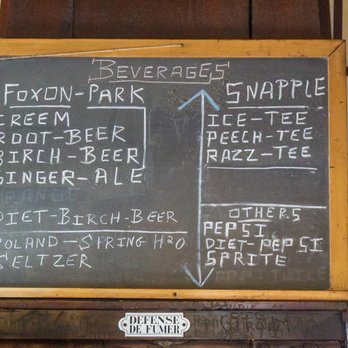 BEVERAGES
FOXON-PARK
CREEM
ROOT-BEER
BIRCH-BEER
GINGER-ALE
DIET-BIRCH-BEER
POLAND-SPRING H2O
SELTZER
SNAPPLE
ICE-TEE
PEECH-TEE
RAZZ-TEE
OTHERS
PEPSI
DIET-PEPSI
SPRITE
DEFENSE
DE FUMER